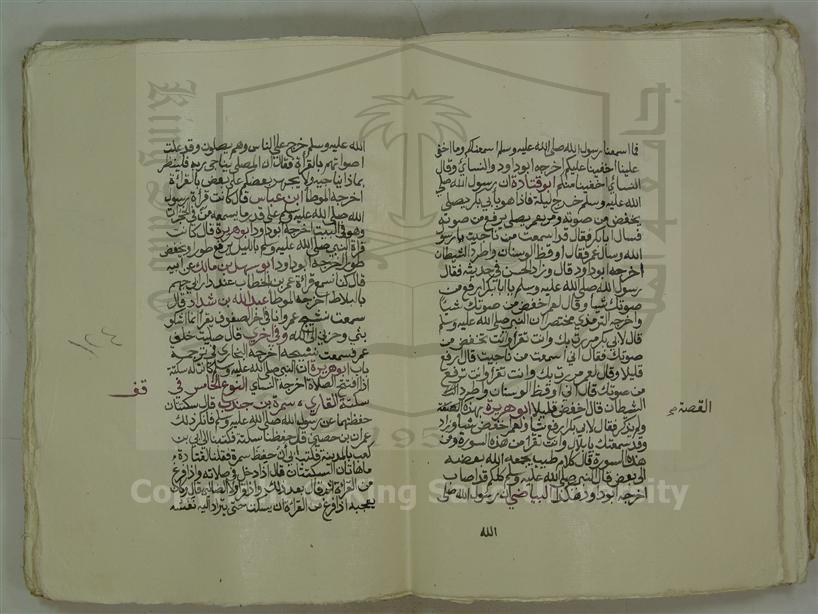 فما اسمعنا رسول الله صلى الله عليه وسلم اسمعنكم وما اخفى
علينا اخفينا عليكم اخرجه ابو داود والنسائي وقال
النسائي اخفينا منكم ابو قتادة ان رسول الله صلى
الله عليه وسلم خرج ليلة فاذا هو بابي بكر يصلي
يخفض من صوته ومر بعمر يصلي يرفع من صوته
فسال ابا بكر فقال قد اسمعت من ناجيت يا رسول
الله وسال عمر فقال اوقظ الوسنان واطرد الشيطان
اخرجه ابو داود قال وزاد الحسن في حديثه فقال
رسول الله صلى الله عليه وسلم يا ابا بكر ارفع من
صوتك شيا وقال لعمر اخفض من صوتك شيا
واخرجه الترمذي مختصرا ان النبي صلى الله عليه وسلم
قال لابي بكر مررت بك وانت تقرا وانت تخفض من
صوتك فقال اني اسمعت من ناجيت قال ارفع
قليلا وقال لعمر مررت بك وانت تقرا وانت ترفع
من صوتك قال اني اوقظ الوسنان واطرد
الشيطان قال اخفض قليلا ابو هريرة بهذه القصة
ولم يذكر فقال لابي بكر ارفع شيا ولعمر اخفض شيا وزاد
وقد سمعتك يا بلال وانت تقرا من هذه السورة ومن
هذه السورة قال كلام طيب يجمعه الله بعضه
الى بعض قال النبي صلى الله عليه وسلم كلكم قد اصاب
اخرجه ابو داود هكذا البياضي ان رسول الله صلى
الله
القصة
الله عليه وسلم خرج على الناس وهم يصلون وقد علت
اصواتهم بالقراة فقال ان المصلي يناجي ربه فلينظر
بماذا يناجيه ولا يجهر بعضكم على بعض بالقراة
اخرجه الموطا ابن عباس قال كانت قراة رسول
الله صلى الله عليه وسلم على قدر ما يسمعه من في الحجرة
وهو في البيت اخرجه ابو داود ابو هريرة قال كانت
قراة النبي صلى الله عليه وسلم بالليل يرفع طورا ويخفض
طورا اخرجه ابو داود ابو سهيل بن مالك عن ابيه
قال كنا نسمع قراة عمر بن الخطاب عند دار ابي جهم
بالبلاط اخرجه الموطا عبد الله بن شداد قال
سمعت نشيج عمر وانا في اخر الصفوف يقرا انما اشكو
بثي وحزني الى الله وفي اخرى قال صليت خلف
عمر فسمعت نشيجه اخرجه البخاري في ترجمة
باب ابو هريرة ان النبي صلى الله عليه وسلم كانت له سكتة
اذا افتتح الصلاة اخرجه النسائي النوع الخامس في
سكتة القاري سمرة بن جندب قال سكتتان
حفظتهما عن رسول الله صلى الله عليه وسلم فانكر ذلك
عمران بن حصين قال حفظنا سكتة فكتبنا الى ابي بن
كعب بالمدينة فكتب ابي ان حفظ سمرة فقلنا لقتادة
ما هاتان السكتتان قال اذا دخل في صلاته واذا فرغ
من القراة ثم قال بعد ذلك واذا قرا ولا الضالين قال وكان
يعجبه اذا فرغ من القراة ان يسكت حتى يتراد اليه نفسه
قف